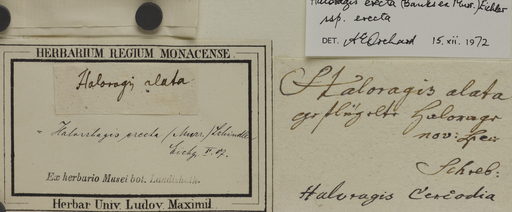 Haloragis erecta (Banks ex Murr.) Eichler
ssp. erecta
DET. A E Orchard 15.xii.1972
HERBARIUM REGIUM MONACENSE.
Haloragis alata
Halorrhagis erecta (Murr.) Schindler
Ex herbario Musei bot. Landishuth.
Herbar Univ. Ludov. Maximil.
Haloragis alata
geflügelte Halorage
nov: Spec
Schreb:
Haloragis Cercodia